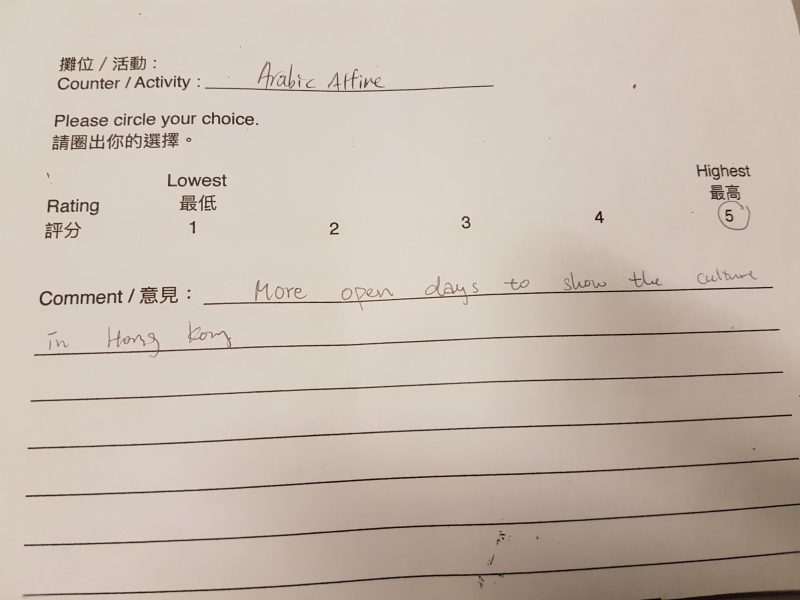 攤位 / 活動：
Counter / Activity : Arabic Attire
Please circle your choice.
請圈出你的選擇。
Lowest Highest
Rating 最低 最高
評分 1 2 3 4 5
Comment / 意見： More open days to show the culture
in Hong Kong